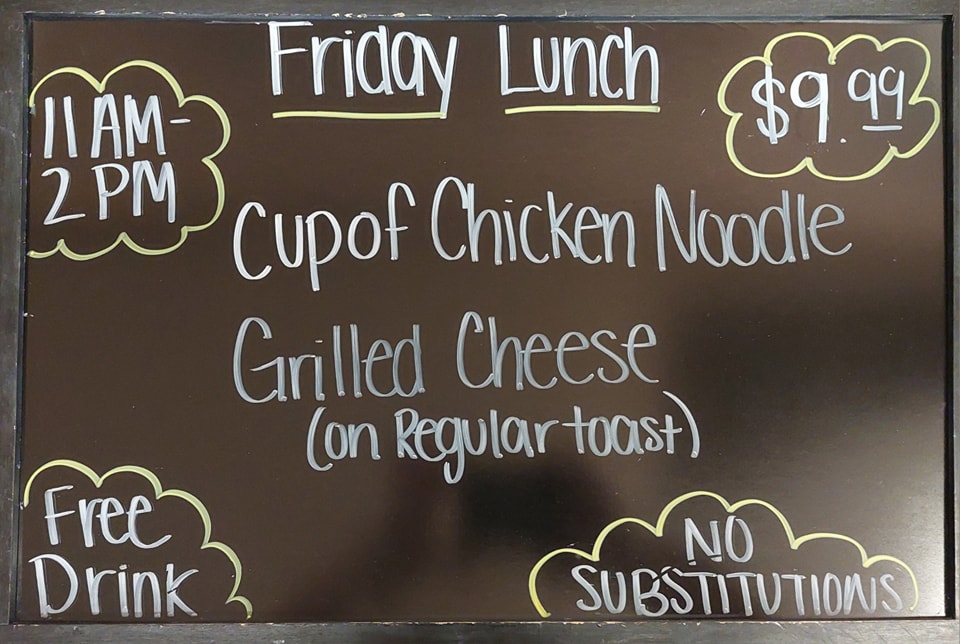 Friday Lunch
11 AM-
2 PM
$9.99
Cup of Chicken Noodle
Grilled Cheese
(on Regular toast)
Free
Drink
NO
SUBSTITUTIONS